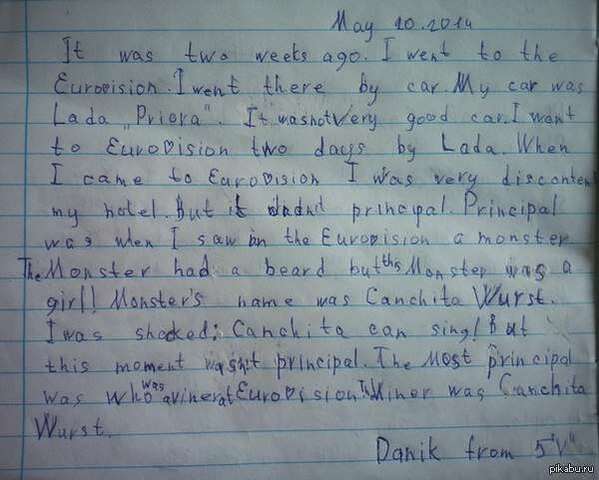 May 20.2014
It was two weeks ago. I went to the
Eurovision. I went there by car. My car was
Lada „Priora". It was not very good car. I want
to Eurovision two days by Lada. When
I came to Eurovision I was very disconten
my hotel. But it didnit principal. Principal
was when I saw in the Eurovision a monster
The Monster had a beard but this Monster was a
girl! Monster's name was Canchita Wurst.
I was shocked; Canchita can sing! But
this moment wasnt principal. The Most principal
was who was a viner at Eurovision The Winer was Canchita
Wurst.
Danik from 5"V"
pikabu.ru